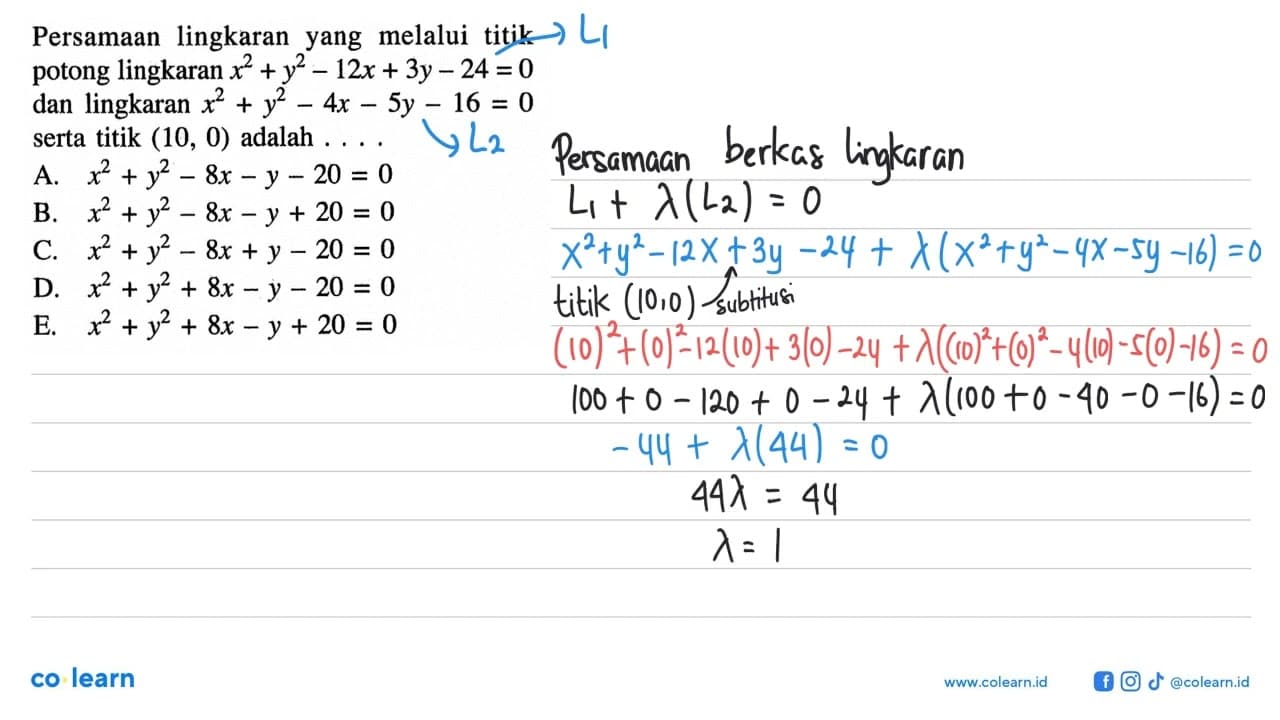 Persamaan lingkaran yang melalui titik → L1
potong lingkaran x² + y² – 12x + 3y – 24 = 0
dan lingkaran x² + y² – 4x – 5y – 16 = 0
serta titik (10, 0) adalah . . . . ↘ L2
A. x² + y² – 8x – y – 20 = 0
B. x² + y² – 8x – y + 20 = 0
C. x² + y² – 8x + y – 20 = 0
D. x² + y² + 8x – y – 20 = 0
E. x² + y² + 8x – y + 20 = 0
Persamaan berkas lingkaran
L1 + λ(L2) = 0
x²+y²–12x+3y–24 + λ(x²+y²–4x–5y–16)=0
titik (10,0) subtitusi
(10)²+(0)²–12(10)+3(0)–24+λ((10)²+(0)²–4(10)–5(0)–16)=0
100+0–120+0–24+λ(100+0–40–0–16)=0
–44 + λ(44) = 0
44λ = 44
λ = 1
co·learn
www.colearn.id
@colearn.id